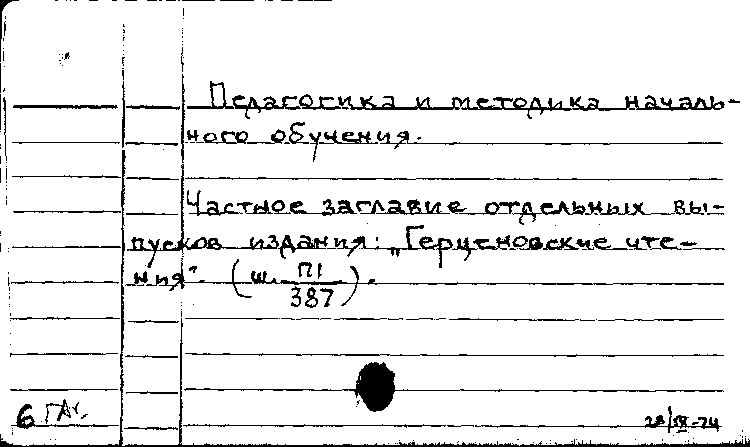 Педагогика и методика началь-
ного обучения.
Частное заглавие отдельных вы-
пусков издания: „Герценовские чте-
ния". (ш. П1/387).
6